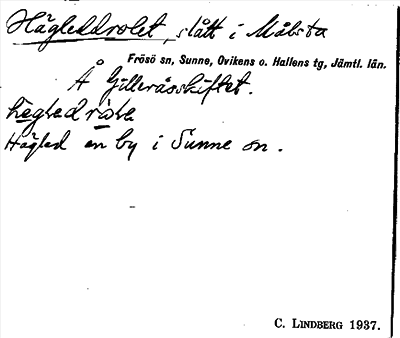 Hägleddrolet, slått i Måbsta
Frösö sn, Sunne, Ovikens o. Hallens tg, Jämtl. län.
Å Gilleråsskiftet.
Hägled en by i Sunne sn.
C. LINDBERG 1937.